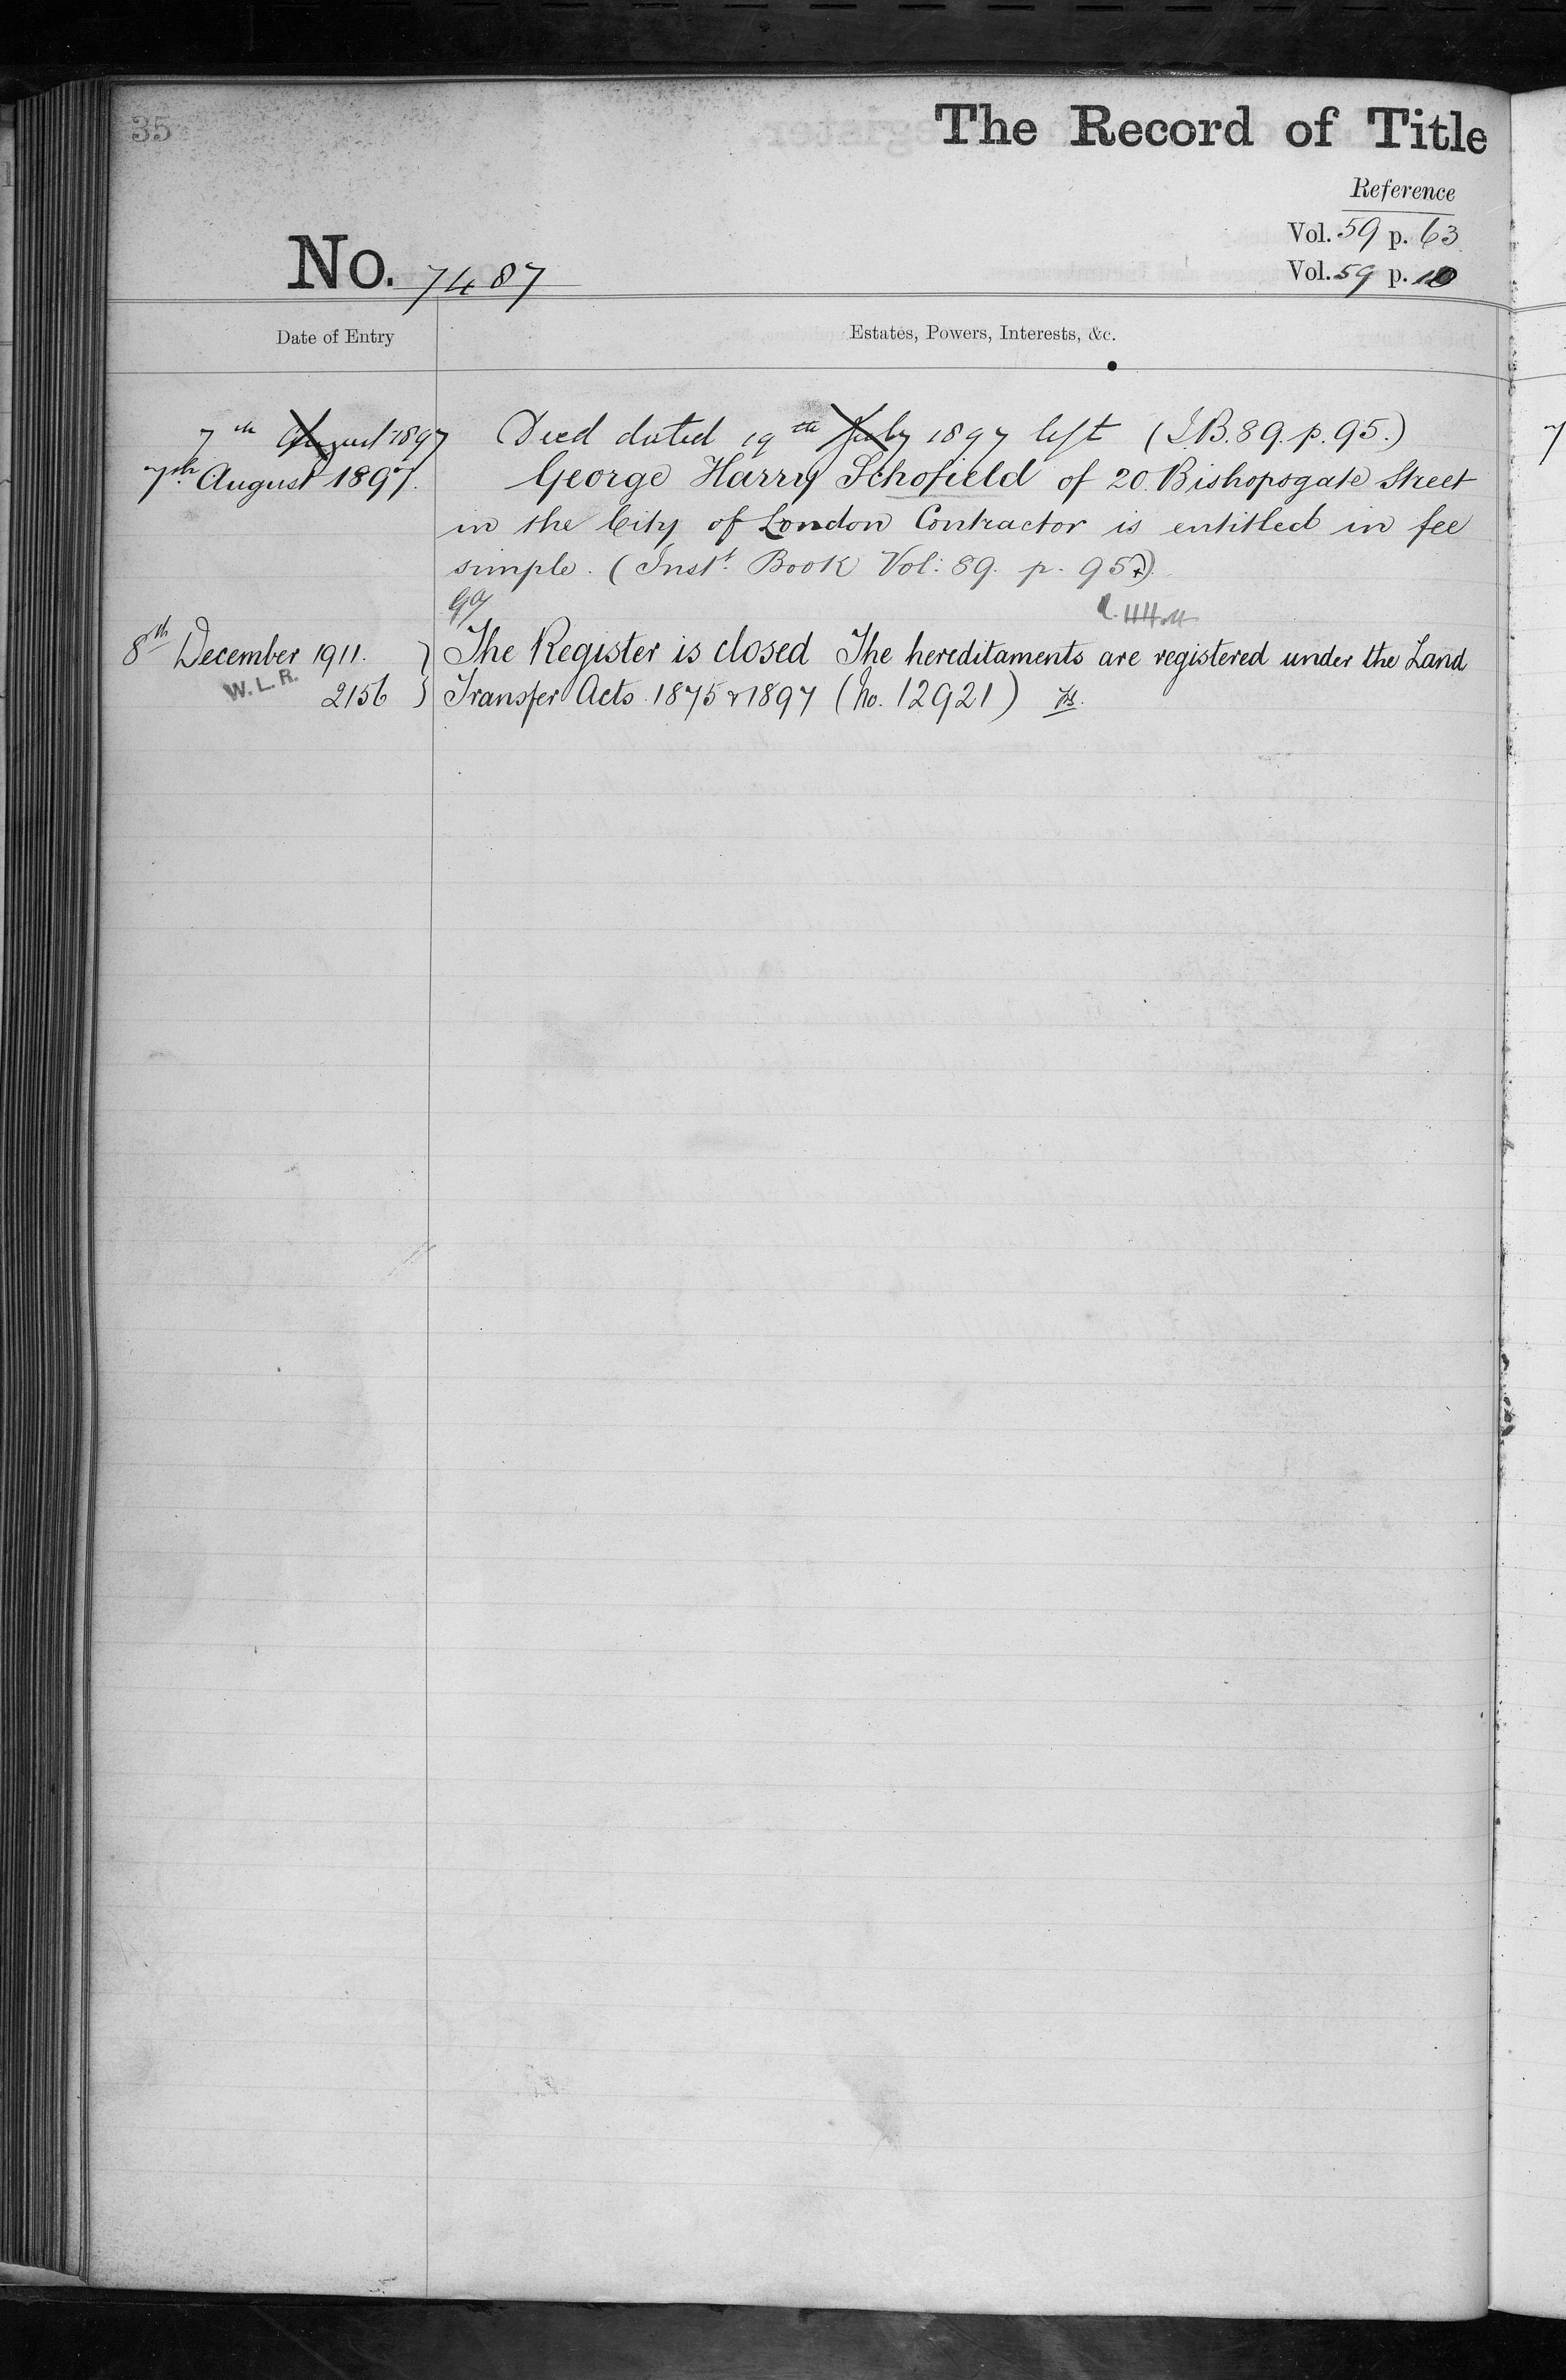 35
The Record of Title
Reference
Vol. 59 p. 63
Vol. 59 p. 10
No. 7487
Date of Entry
Estates, Powers, Interests, &c.
7th August 1897 Deed dated 19th July 1897 left (I.B. 89. p. 95.)
7th August 1897. George Harry Schofield of 20 Bishopsgate Street
in the City of London Contractor is entitled in fee
simple. (Inst. Book Vol: 89. p. 95)
8th December 1911. } The Register is closed The hereditaments are registered under the Land
W. L. R.
2156 } Transfer Acts 1875 & 1897 (No. 12921)